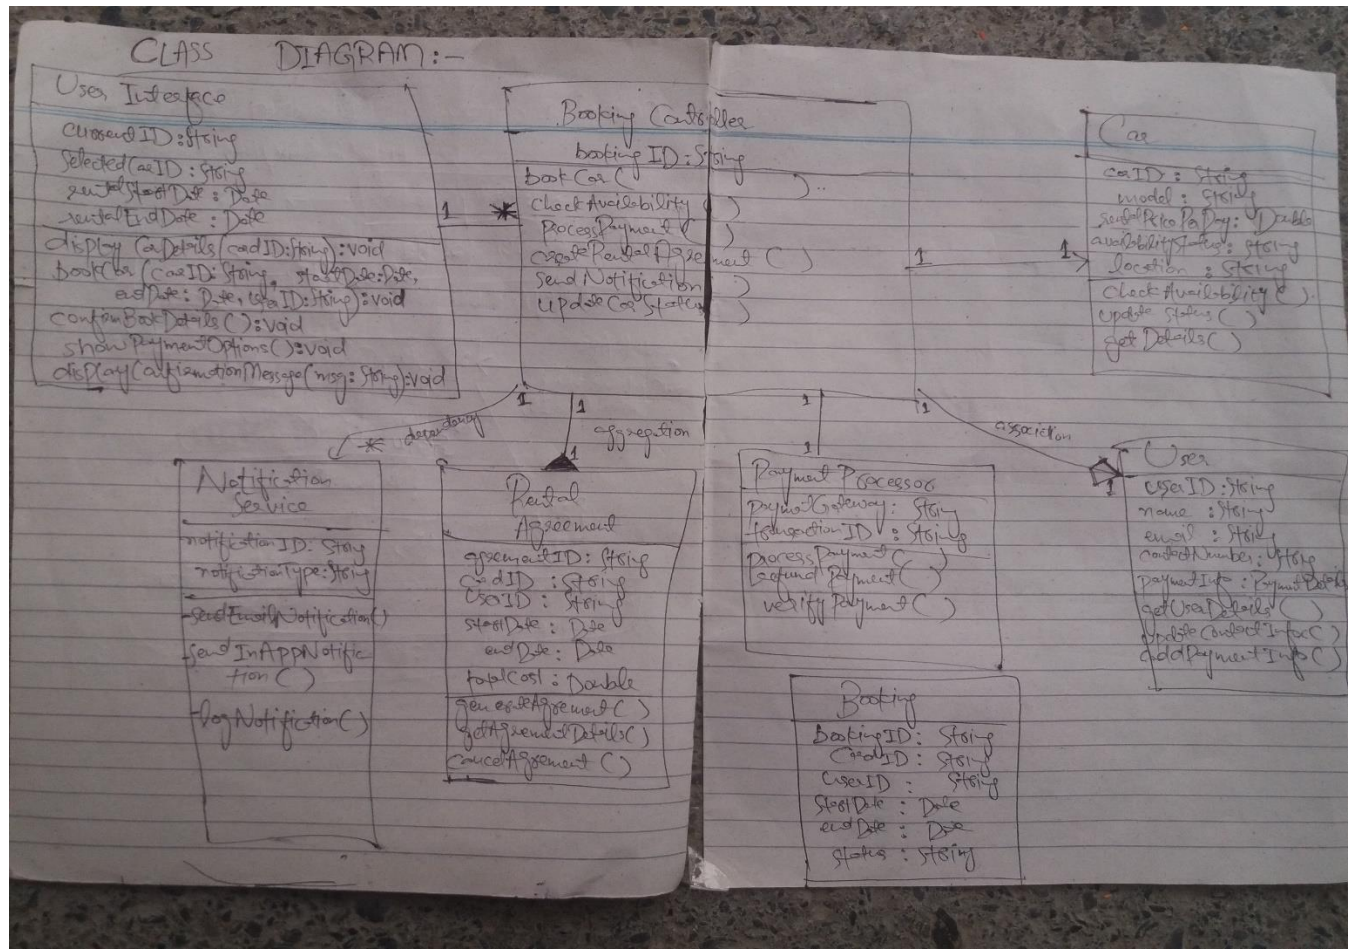 CLASS DIAGRAM:-
User Interface
currentID:String
SelectedCarID:String
rentalStartDate: Date
rentalEndDate: Date
display CarDetails(cardID:String):void
BookCar(carID:String, startDate:Date,
endDate: Date, userID:String):void
confirmBookDetails():void
showPaymentOptions():void
display ConfirmationMessage(msg: String):void
1 *
Booking Controller
booking ID: String
book Car( )..
check Availability( )
ProcessPayment( )
createRentalAgreement( )
send Notification )
Update Car Status )
1 1
Car
carID: String
model: String
rentalPricePerDay: Double
availabilityStatus: String
location: String
Check Availability( ).
update Status( )
get Details( )
1 * dependency
1 aggregation 1
1 1
1 association 1
Notification
Service
notificationID: String
notificationType:String
-sendEmailNotification()
-send InAppNotific
tion()
-logNotification()
Rental
Agreement
agreementID: String
cardID: String
UserID: String
startDate: Date
endDate: Date
totalCost: Double
generateAgreement()
getAgreementDetails()
cancelAgreement()
Payment Processor
paymentGateway: String
transactionID: String
processPayment( )
refund Payment( )
verify Payment( )
User
userID:String
name:String
email: String
contactNumber: String
paymentInfo: PaymentDetails
getUserDetails( )
update ContactInfo( )
addPaymentInfo( )
Booking
BookingID: String
CardID: String
UserID: String
startDate: Date
endDate: Date
status: String